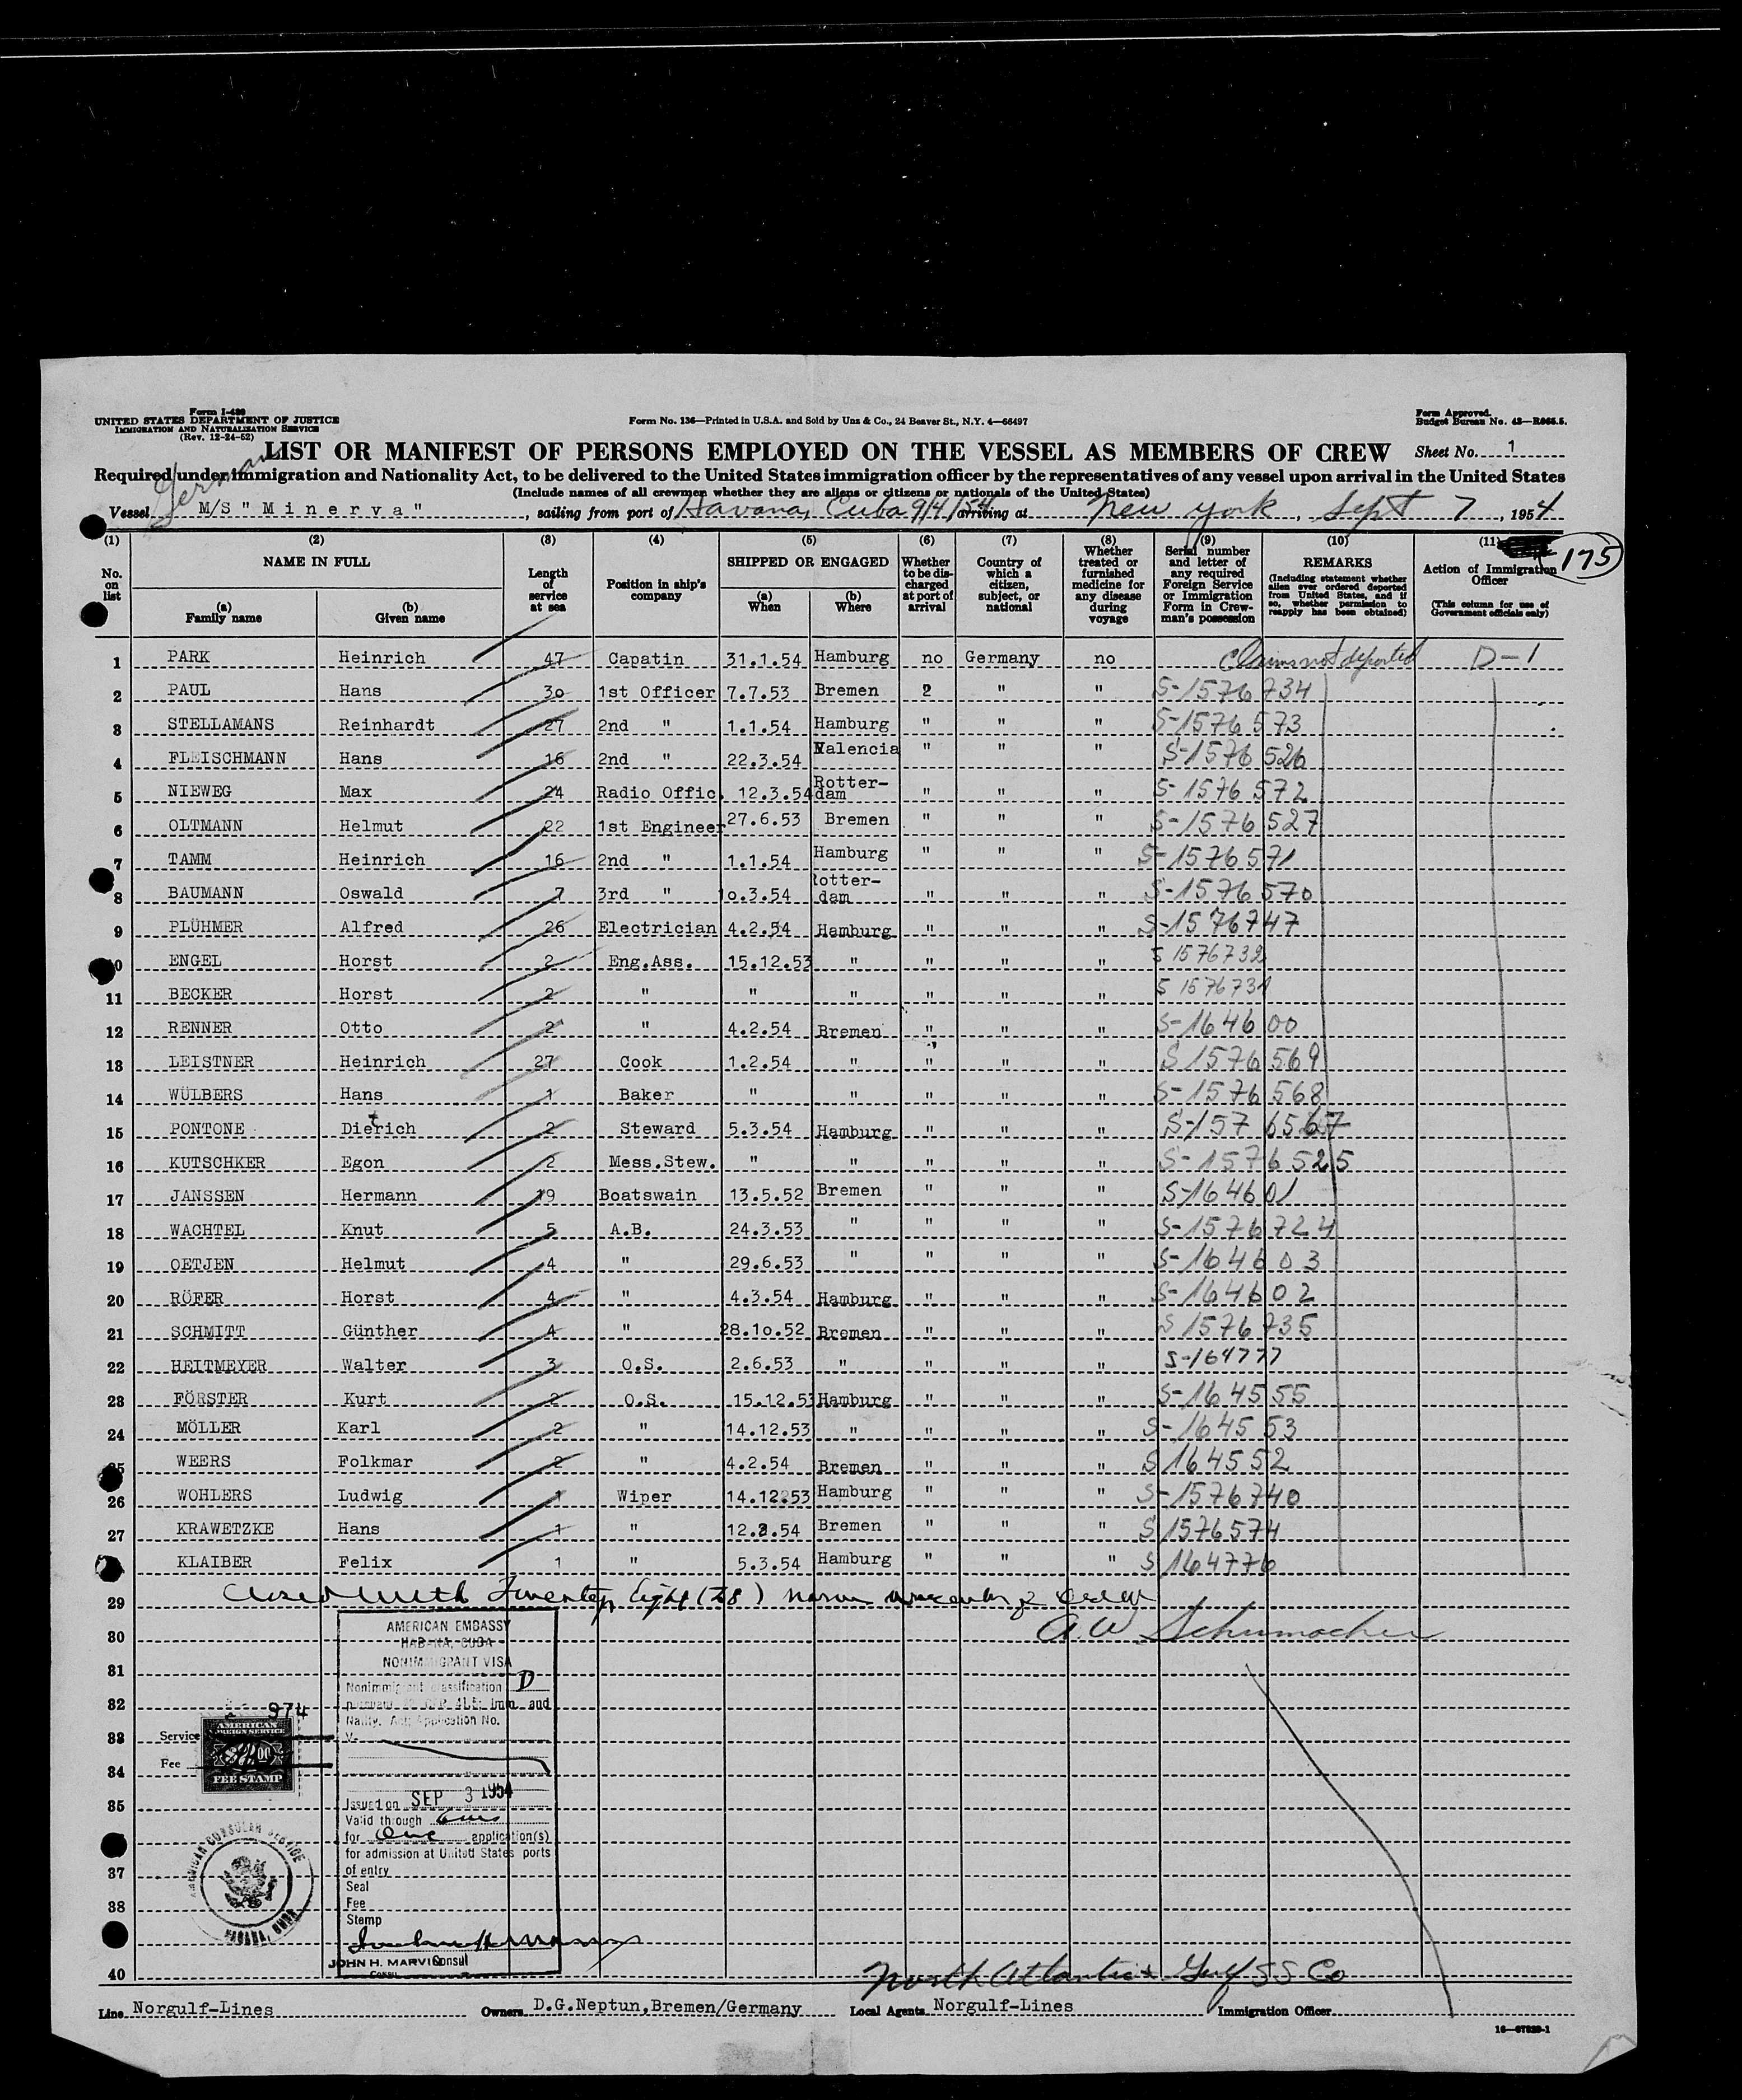 Form I-480
UNITED STATES DEPARTMENT OF JUSTICE
IMMIGRATION AND NATURALIZATION SERVICE
(Rev. 12-24-52)
Form No. 136—Printed in U.S.A. and Sold by Unz & Co., 24 Beaver St., N.Y. 4—66497
Form Approved.
Budget Bureau No. 43—R065.5.
LIST OR MANIFEST OF PERSONS EMPLOYED ON THE VESSEL AS MEMBERS OF CREW
Sheet No. 1
Required under Immigration and Nationality Act, to be delivered to the United States immigration officer by the representatives of any vessel upon arrival in the United States
(Include names of all crewmen whether they are aliens or citizens or nationals of the United States)
German
Vessel M/S "Minerva", sailing from port of Havana, Cuba 9/4/54 arriving at New York, Sept 7, 1954
175
(1) No. on list
(2) NAME IN FULL (a) Family name (b) Given name
(3) Length of service at sea
(4) Position in ship's company
(5) SHIPPED OR ENGAGED (a) When (b) Where
(6) Whether to be discharged at port of arrival
(7) Country of which a citizen, subject, or national
(8) Whether treated or furnished medicine for any disease during voyage
(9) Serial number and letter of any required Foreign Service or Immigration Form in Crewman's possession
(10) REMARKS (Including statement whether alien ever ordered deported from United States, and if so, whether permission to reapply has been obtained)
(11) Action of Immigration Officer (This column for use of Government officials only)
1 PARK Heinrich 47 Capatin 31.1.54 Hamburg no Germany no Claims not deported D-1
2 PAUL Hans 30 1st Officer 7.7.53 Bremen " " S-1576734
3 STELLAMANS Reinhardt 27 2nd " 1.1.54 Hamburg " " " S-1576573
4 FLEISCHMANN Hans 16 2nd " 22.3.54 Valencia " " " S-1576526
5 NIEWEG Max 24 Radio Offic. 12.3.54 Rotterdam " " " S-1576572
6 OLTMANN Helmut 22 1st Engineer 27.6.53 Bremen " " " S-1576527
7 TAMM Heinrich 16 2nd " 1.1.54 Hamburg " " " S-1576571
8 BAUMANN Oswald 7 3rd " 1o.3.54 Rotterdam " " " S-1576570
9 PLÜHMER Alfred 26 Electrician 4.2.54 Hamburg " " " S-1576747
10 ENGEL Horst 2 Eng.Ass. 15.12.53 " " " " S 1576732
11 BECKER Horst 2 " " " " " " S 1576731
12 RENNER Otto 2 " 4.2.54 Bremen " " " S-164600
13 LEISTNER Heinrich 27 Cook 1.2.54 " " " " S 1576569
14 WÜLBERS Hans 1 Baker " " " " " S-1576568
15 PONTONE Dietrich 2 Steward 5.3.54 Hamburg " " " S-1576567
16 KUTSCHKER Egon 2 Mess.Stew. " " " " " S-1576525
17 JANSSEN Hermann 19 Boatswain 13.5.52 Bremen " " " S-164601
18 WACHTEL Knut 5 A.B. 24.3.53 " " " " S-1576724
19 OETJEN Helmut 4 " 29.6.53 " " " " S-164603
20 RÖFER Horst 4 " 4.3.54 Hamburg " " " S-164602
21 SCHMITT Günther 4 " 28.1o.52 Bremen " " " S 1576735
22 HEITMEYER Walter 3 O.S. 2.6.53 " " " " S-164777
23 FÖRSTER Kurt 2 O.S. 15.12.53 Hamburg " " " S-164555
24 MÖLLER Karl 2 " 14.12.53 " " " " S-164553
25 WEERS Folkmar 2 " 4.2.54 Bremen " " " S 164552
26 WOHLERS Ludwig 1 Wiper 14.12.53 Hamburg " " " S-1576740
27 KRAWETZKE Hans 1 " 12.2.54 Bremen " " " S 1576574
28 KLAIBER Felix 1 " 5.3.54 Hamburg " " " S 164776
29 Closed with Twenty Eight (28)
30 A.W. Schumacher
31
32
33
34
35
37
38
40
AMERICAN EMBASSY
HABANA, CUBA
NONIMMIGRANT VISA
Nonimmigrant classification D
Imm. and
Natlty. Act; Application No.
V-
Issued on SEP 3 1954
Valid through
for One application(s)
for admission at United States ports
of entry
Seal
Fee
Stamp
JOHN H. MARVIN Consul
974
Service
Fee
AMERICAN FOREIGN SERVICE
FEE STAMP
AMERICAN CONSULAR SERVICE
HABANA, CUBA
North Atlantic & Gulf S S Co
Line Norgulf-Lines Owners D.G.Neptun,Bremen/Germany Local Agents Norgulf-Lines Immigration Officer
16—67220-1